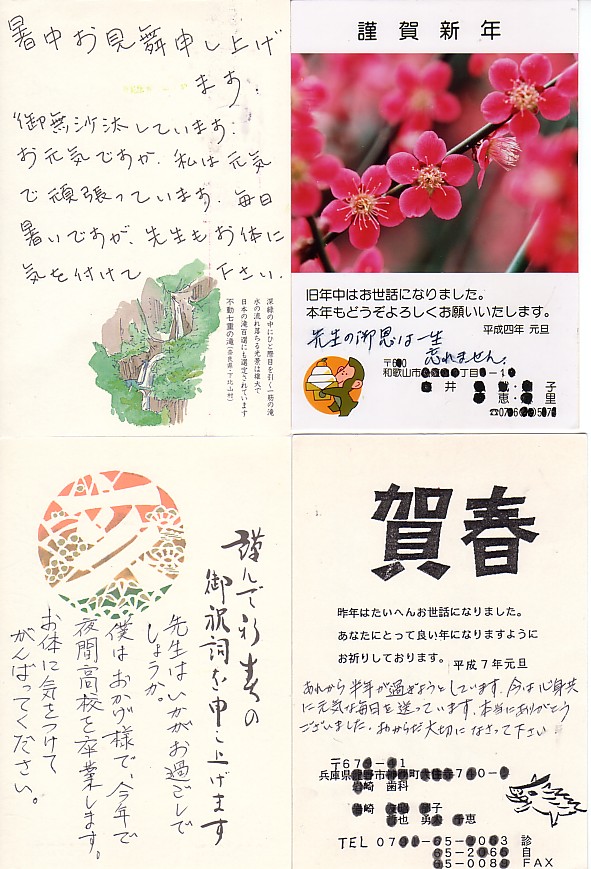 暑中お見舞申し上げ
ます.
御無沙汰しています.
お元気ですか. 私は元気
で頑張っています. 毎日
暑いですが、先生もお体に
気を付けて 下さい.
深緑の中にひと際目を引く一筋の滝
水の流れ落ちる光景は雄大で
日本の滝百選にも選定されています
不動七重の滝(奈良県・下北山村)
謹賀新年
旧年中はお世話になりました。
本年もどうぞよろしくお願いいたします。
平成四年 元旦
先生の御恩は一生
忘れません.
和歌山市 丁目 -1
井 子
恵 里
謹んで新春の
御祝詞を申し上げます
先生はいかがお過ごしで
しょうか。
僕はおかげ様で、今年で
夜間高校を卒業します。
お体に気をつけて
がんばってください。
賀春
昨年はたいへんお世話になりました。
あなたにとって良い年になりますように
お祈りしております。 平成7年元旦
あれから半年が過ぎようとしています. 今は心身共
に元気な毎日を送っています. 本当にありがとう
ございました. おからだ大切になさって下さい
兵庫県 野市 740-
岩崎 歯科
岩崎 子
也 勇 千恵
TEL 診
自
FAX